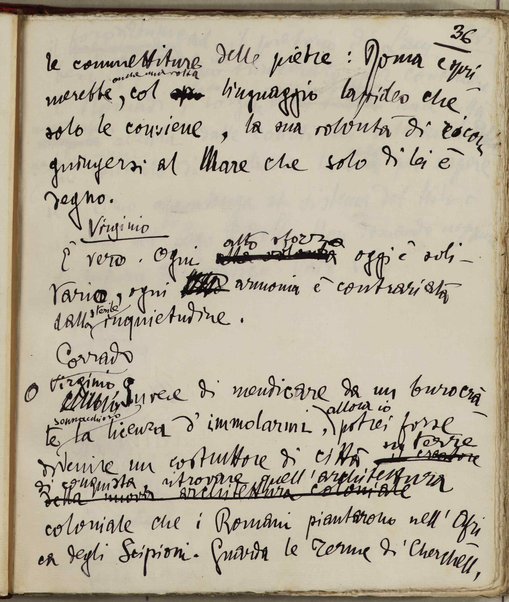 36
le commettiture delle pietre: Roma espri
merebbe, anche una volta, col linguaggio lapideo che
solo le conviene, la sua volontà di ricon
giungersi al Mare che solo di lei è
degno.
Virginio
È vero. Ogni alto sforzo oggi è soli-
tario, ogni armonia è contrariata
dalla sterile inquietudine.
Corrado
Virginio
Invece di mendicare da un burocra
te sonnacchioso la licenza d'immolarmi, allora io potrei forse
divenire un costruttore di città su terre
di conquista, ritrovare quell'architettura
della nuova architettura coloniale
coloniale che i Romani piantarono nell'Afri
ca degli Scipioni. Guarda le Terme di Cherchell,